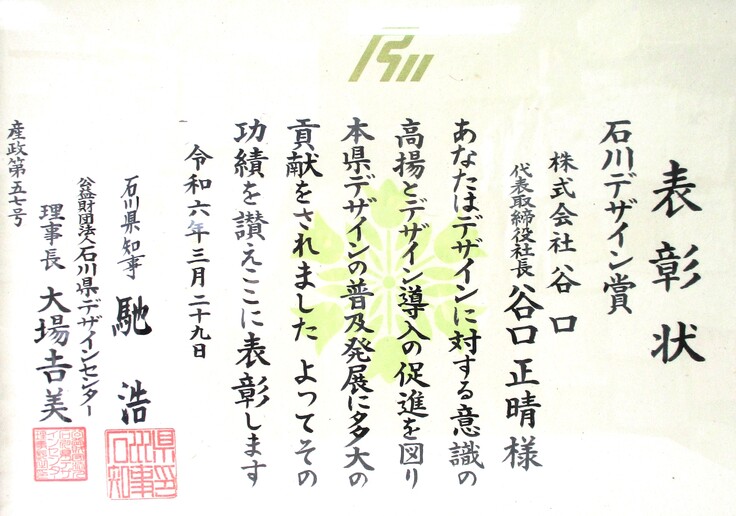 表彰状
石川デザイン賞
株式会社谷口
代表取締役社長 谷口正晴様
あなたはデザインに対する意識の
高揚とデザイン導入の促進を図り
本県デザインの普及発展に多大の
貢献をされました よってその
功績を讃えここに表彰します
令和六年三月二十九日
石川県知事 馳浩
公益財団法人石川県デザインセンター
理事長 大場吉美
産政第五七号